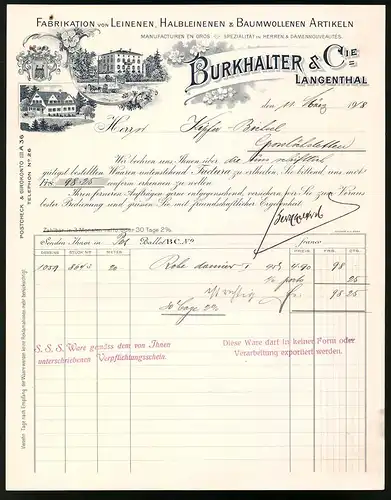 FABRIKATION VON LEINENEN, HALBLEINENEN & BAUMWOLLENEN ARTIKELN
MANUFACTUREN EN GROS SPEZIALITÄT IN HERREN & DAMENNOUVEAUTÉS.
BURKHALTER & CIE
LANGENTHAL
den 11. März 1918
Herrn
POSTCHECK & GIROKONTO III A 36
TELEPHON No 26
Wir beehren uns Ihnen über die
gütigst bestellten Waaren untenstehend Factura zu erteilen, Sie bittend uns mit
Frs. 98.25 conform erkennen zu wollen.
Ihren ferneren Aufträgen gerne entgegensehend, versichern wir Sie zum Voraus
bester Bedienung und grüssen Sie mit freundschaftlicher Ergebenheit
Burkhalter
30 Tage 2%
Senden Ihnen in Post Ballot B.C. No franco
METER PREIS FRS. CTS.
1059 20 Robe 4.90 98
porto 25
98 25
30 Tage 2%
S. S. S. Ware gemäss dem von Ihnen
unterschriebenen Verpflichtungsschein.
Diese Ware darf in keiner Form oder
Verarbeitung exportiert werden.